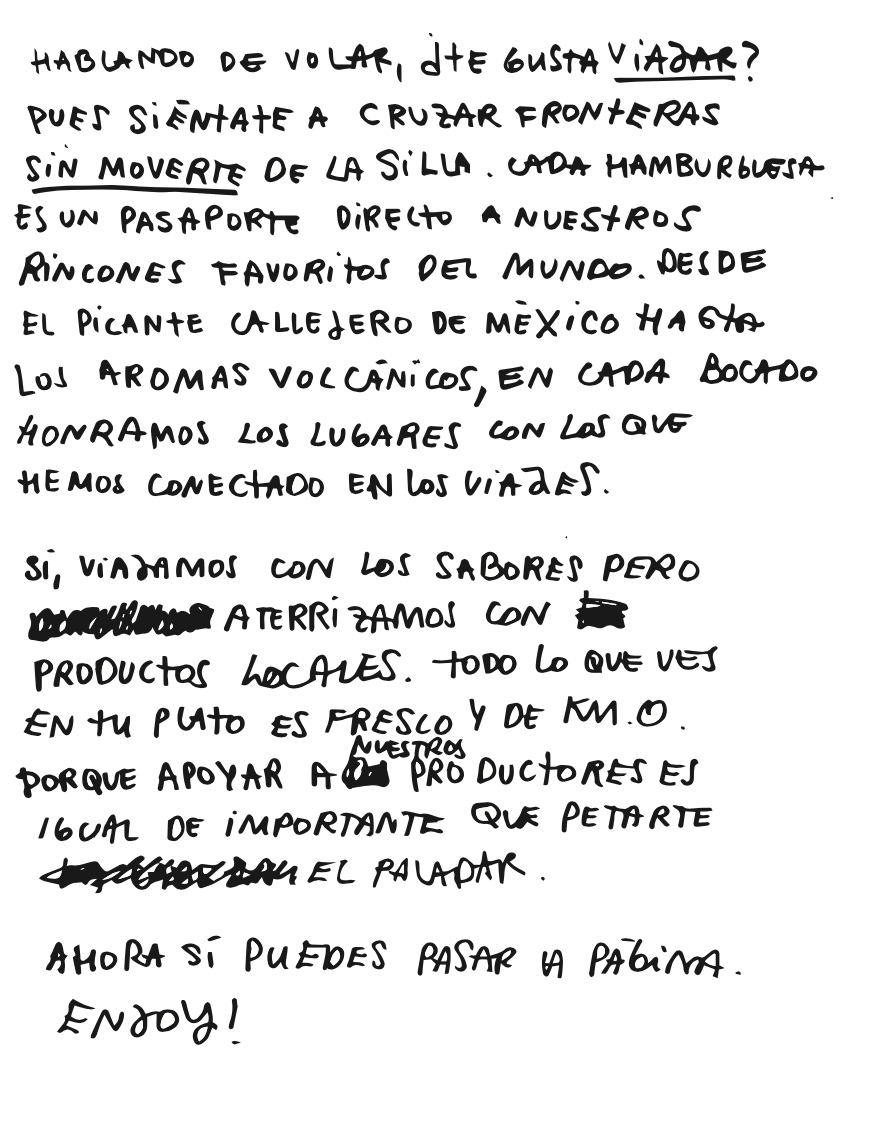 HABLANDO DE VOLAR, ¿TE GUSTA VIAJAR?
PUES SIÉNTATE A CRUZAR FRONTERAS
SIN MOVERTE DE LA SILLA. CADA HAMBURGUESA
ES UN PASAPORTE DIRECTO A NUESTROS
RINCONES FAVORITOS DEL MUNDO. DESDE
EL PICANTE CALLEJERO DE MÉXICO HASTA
LOS AROMAS VOLCÁNICOS, EN CADA BOCADO
HONRAMOS LOS LUGARES CON LOS QUE
HEMOS CONECTADO EN LOS VIAJES.
SÍ, VIAJAMOS CON LOS SABORES PERO
ATERRIZAMOS CON
PRODUCTOS LOCALES. TODO LO QUE VES
EN TU PLATO ES FRESCO Y DE KM.0.
NUESTROS
PORQUE APOYAR A PRODUCTORES ES
IGUAL DE IMPORTANTE QUE PETARTE
EL PALADAR.
AHORA SÍ PUEDES PASAR LA PÁGINA.
ENJOY!